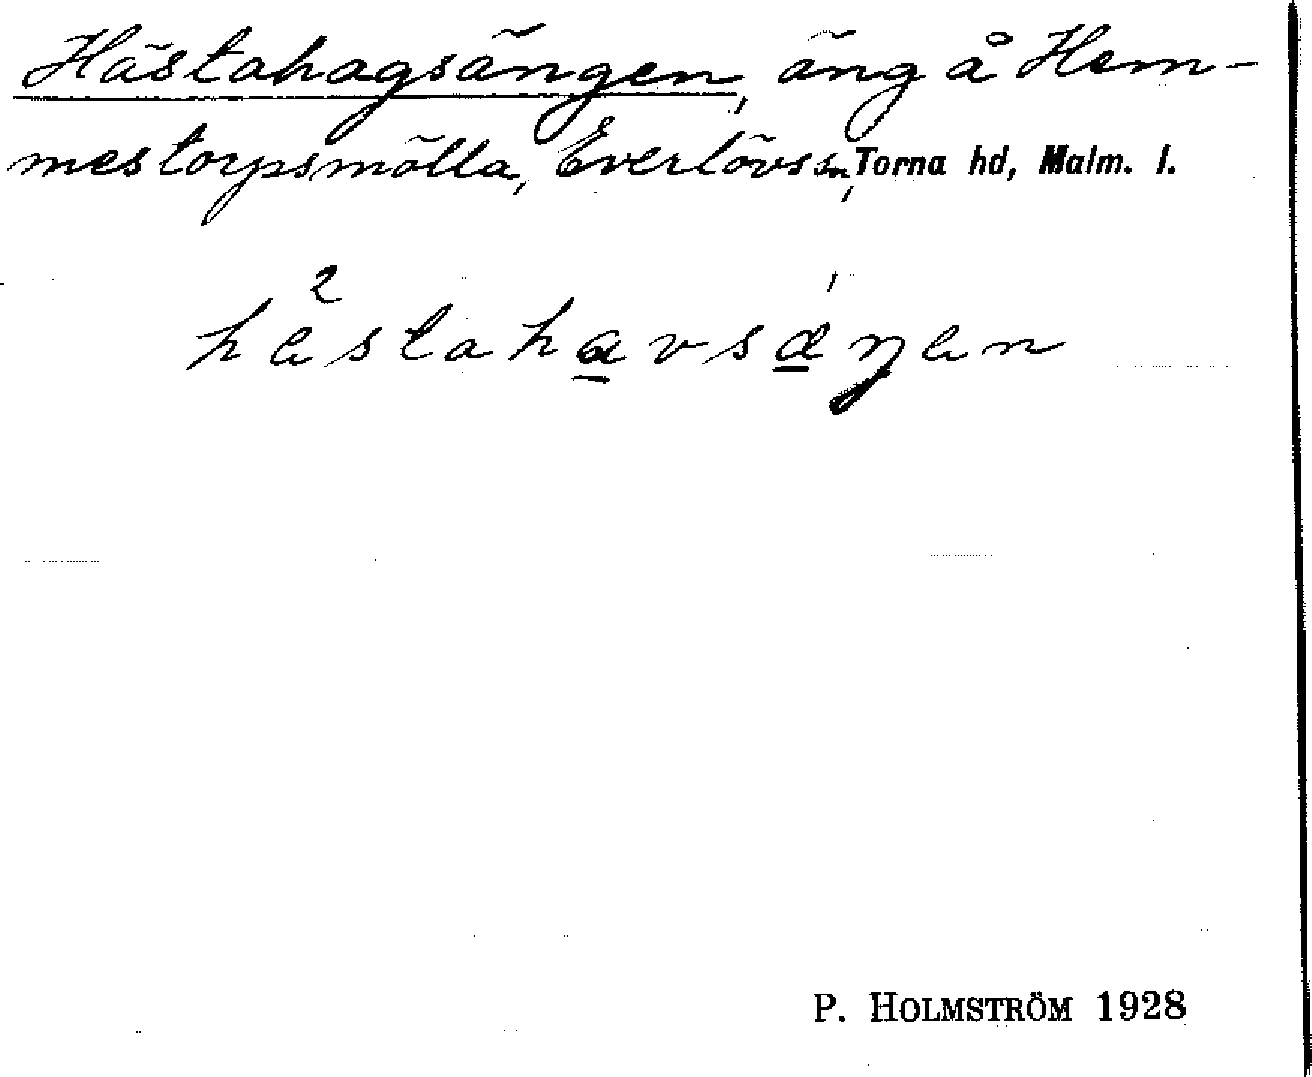 Hästahagsängen, äng å Hem-
mestorpsmölla, Everlövs sn, Torna hd, Malm. l.
hästahavsäŋen
P. HOLMSTRÖM 1928